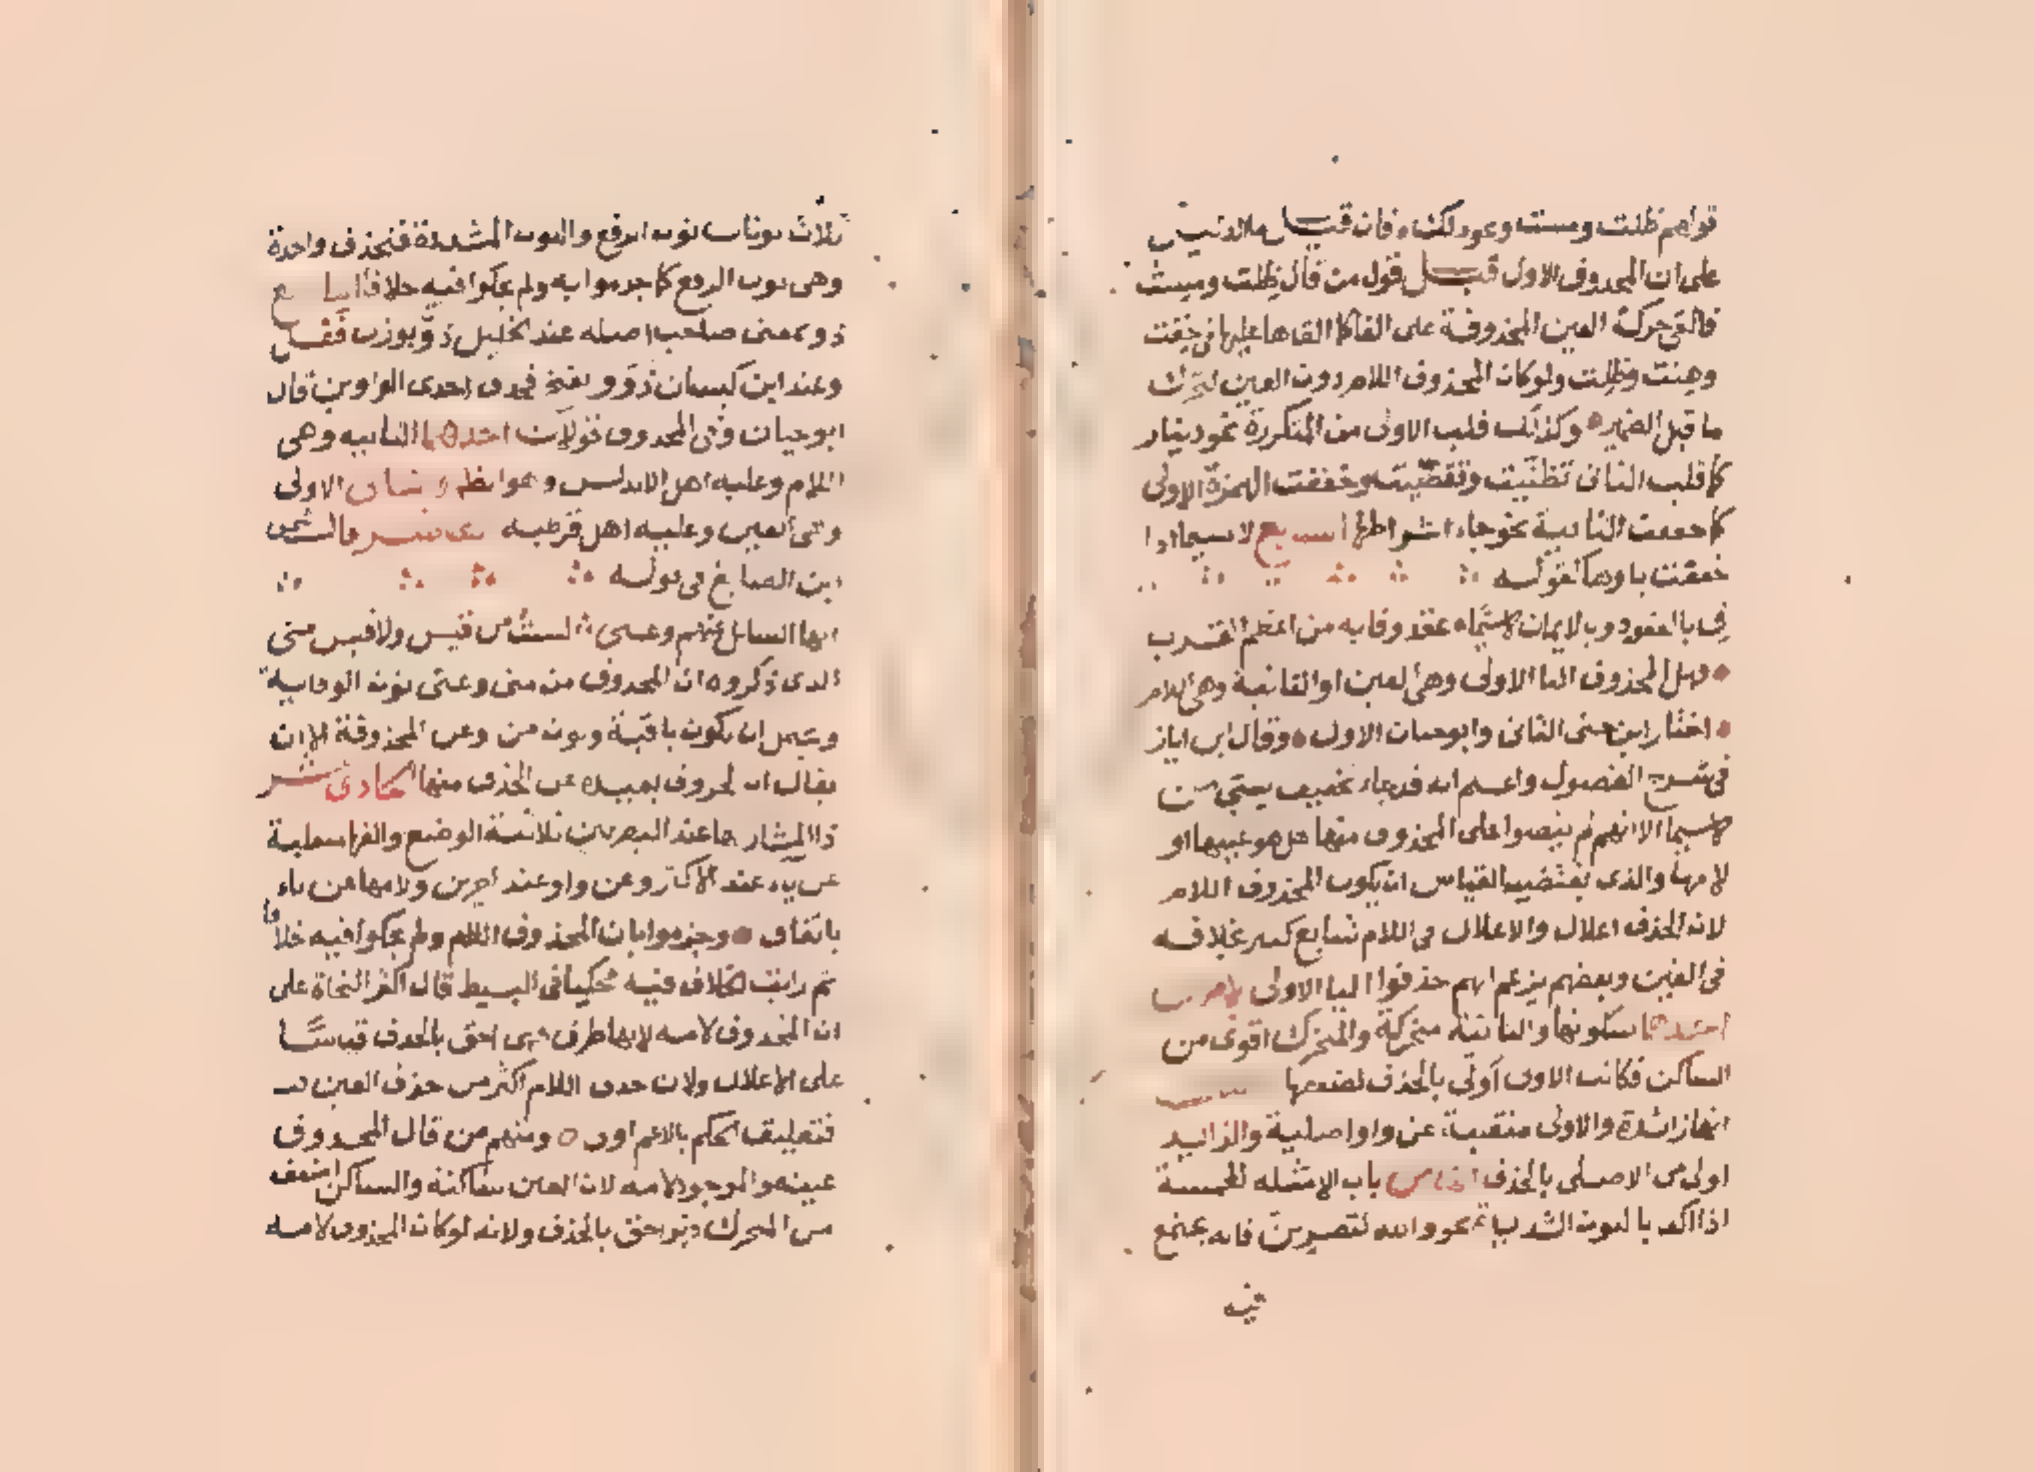 قولهم ظلت ومست ونحو ذلك فان قيل ما الدليل
على ان المحذوف الاول قيل قول من قال ظلت ومست
فالقى حركة العين المحذوفة على الفا كما القاها عليها فى خفت
وهبت وظلت ولو كان المحذوف اللام دون العين لتحرك
ما قبل الضمير وكذلك قلب الاولى من المتكررة نحو دينار
كما قلب الثانى تظنيت وتقضيت وخففت الهمزة الاولى
كما خففت الثانية نحو جاء اشراطها لا سيما اذا
خففت باوها كقوله
فه بالعقود وبالايمان لاسيما عقد وفا به من اعظم القرب
وهل المحذوف اليا الاولى وهى العين او الثانية وهى اللام
اختار ابن جنى الثانى وابو حيان الاول وقال ابن اياز
فى شرح الفصول واعلم انه قد جاء تخفيف
لاسيما الا انهم لم ينصوا على المحذوف منها هل هو عينها او
لامها والذى يقتضيه القياس ان يكون المحذوف اللام
لان الحذف اعلال والاعلال فى اللام شايع كثير بخلافه
فى العين وبعضهم يزعم انهم حذفوا اليا الاولى لامرين
احدهما سكونها والثانية متحركة والمتحرك اقوى من
الساكن فكانت الاولى أولى بالحذف لضعفها
انها زائدة والاولى منقلبة عن واو اصلية والزائد
اولى من الاصلى بالحذف الخامس باب الامثله الخمسة
اذا اكد بالنون الشديدة نحو والله لتضربن فانه يجتمع
فيه
ثلاث نونات نون الرفع والنون المشددة فتحذف واحدة
وهى نون الرفع كما جزموا به ولم يحكوا فيه خلافا
ذو بمعنى صاحب اصله عند الخليل ذوّ بوزن فَعْل
وعند ابن كيسان ذوَو بفتح فحذف احدى الواوين قال
ابو حيان وفى المحذوف قولان احدهما الثانيه وهى
اللام وعليه اهل الاندلس وهو الظ الاولى
وهى العين وعليه اهل قرطبه
ابن الصايغ فى قوله
ايها السائل عنهم وعنى لست من قيس ولا قيس منى
الذى ذكروه ان المحذوف من منى وعنى نون الوقاية
ويحتمل ان تكون باقية ونون من وعن المحذوفة الا ان
يقال ان الحروف بعيدة عن الحذف منها الحادى عشر
ذا المشار بها عند البصريين ثلاثية الوضع والفها منقلبة
عن ياء عند الاكثر وعن واو عند آخرين ولامها عن ياء
باتفاق وجزموا بان المحذوف اللام ولم يحكوا فيه خلافا
ثم رايت الخلاف فيه محكيا فى البسيط قال اكثر النحاة على
ان المحذوف لامه لانها طرف فهى احق بالحذف قياسًا
على الاعلال ولان حذف اللام اكثر من حذف العين
فتعليق الحكم بالاعم اولى ومنهم من قال المحذوف
عينه والموجود لامه لان العين ساكنة والساكن اضعف
من المتحرك فهو احق بالحذف ولانه لو كان المحذوف لامه